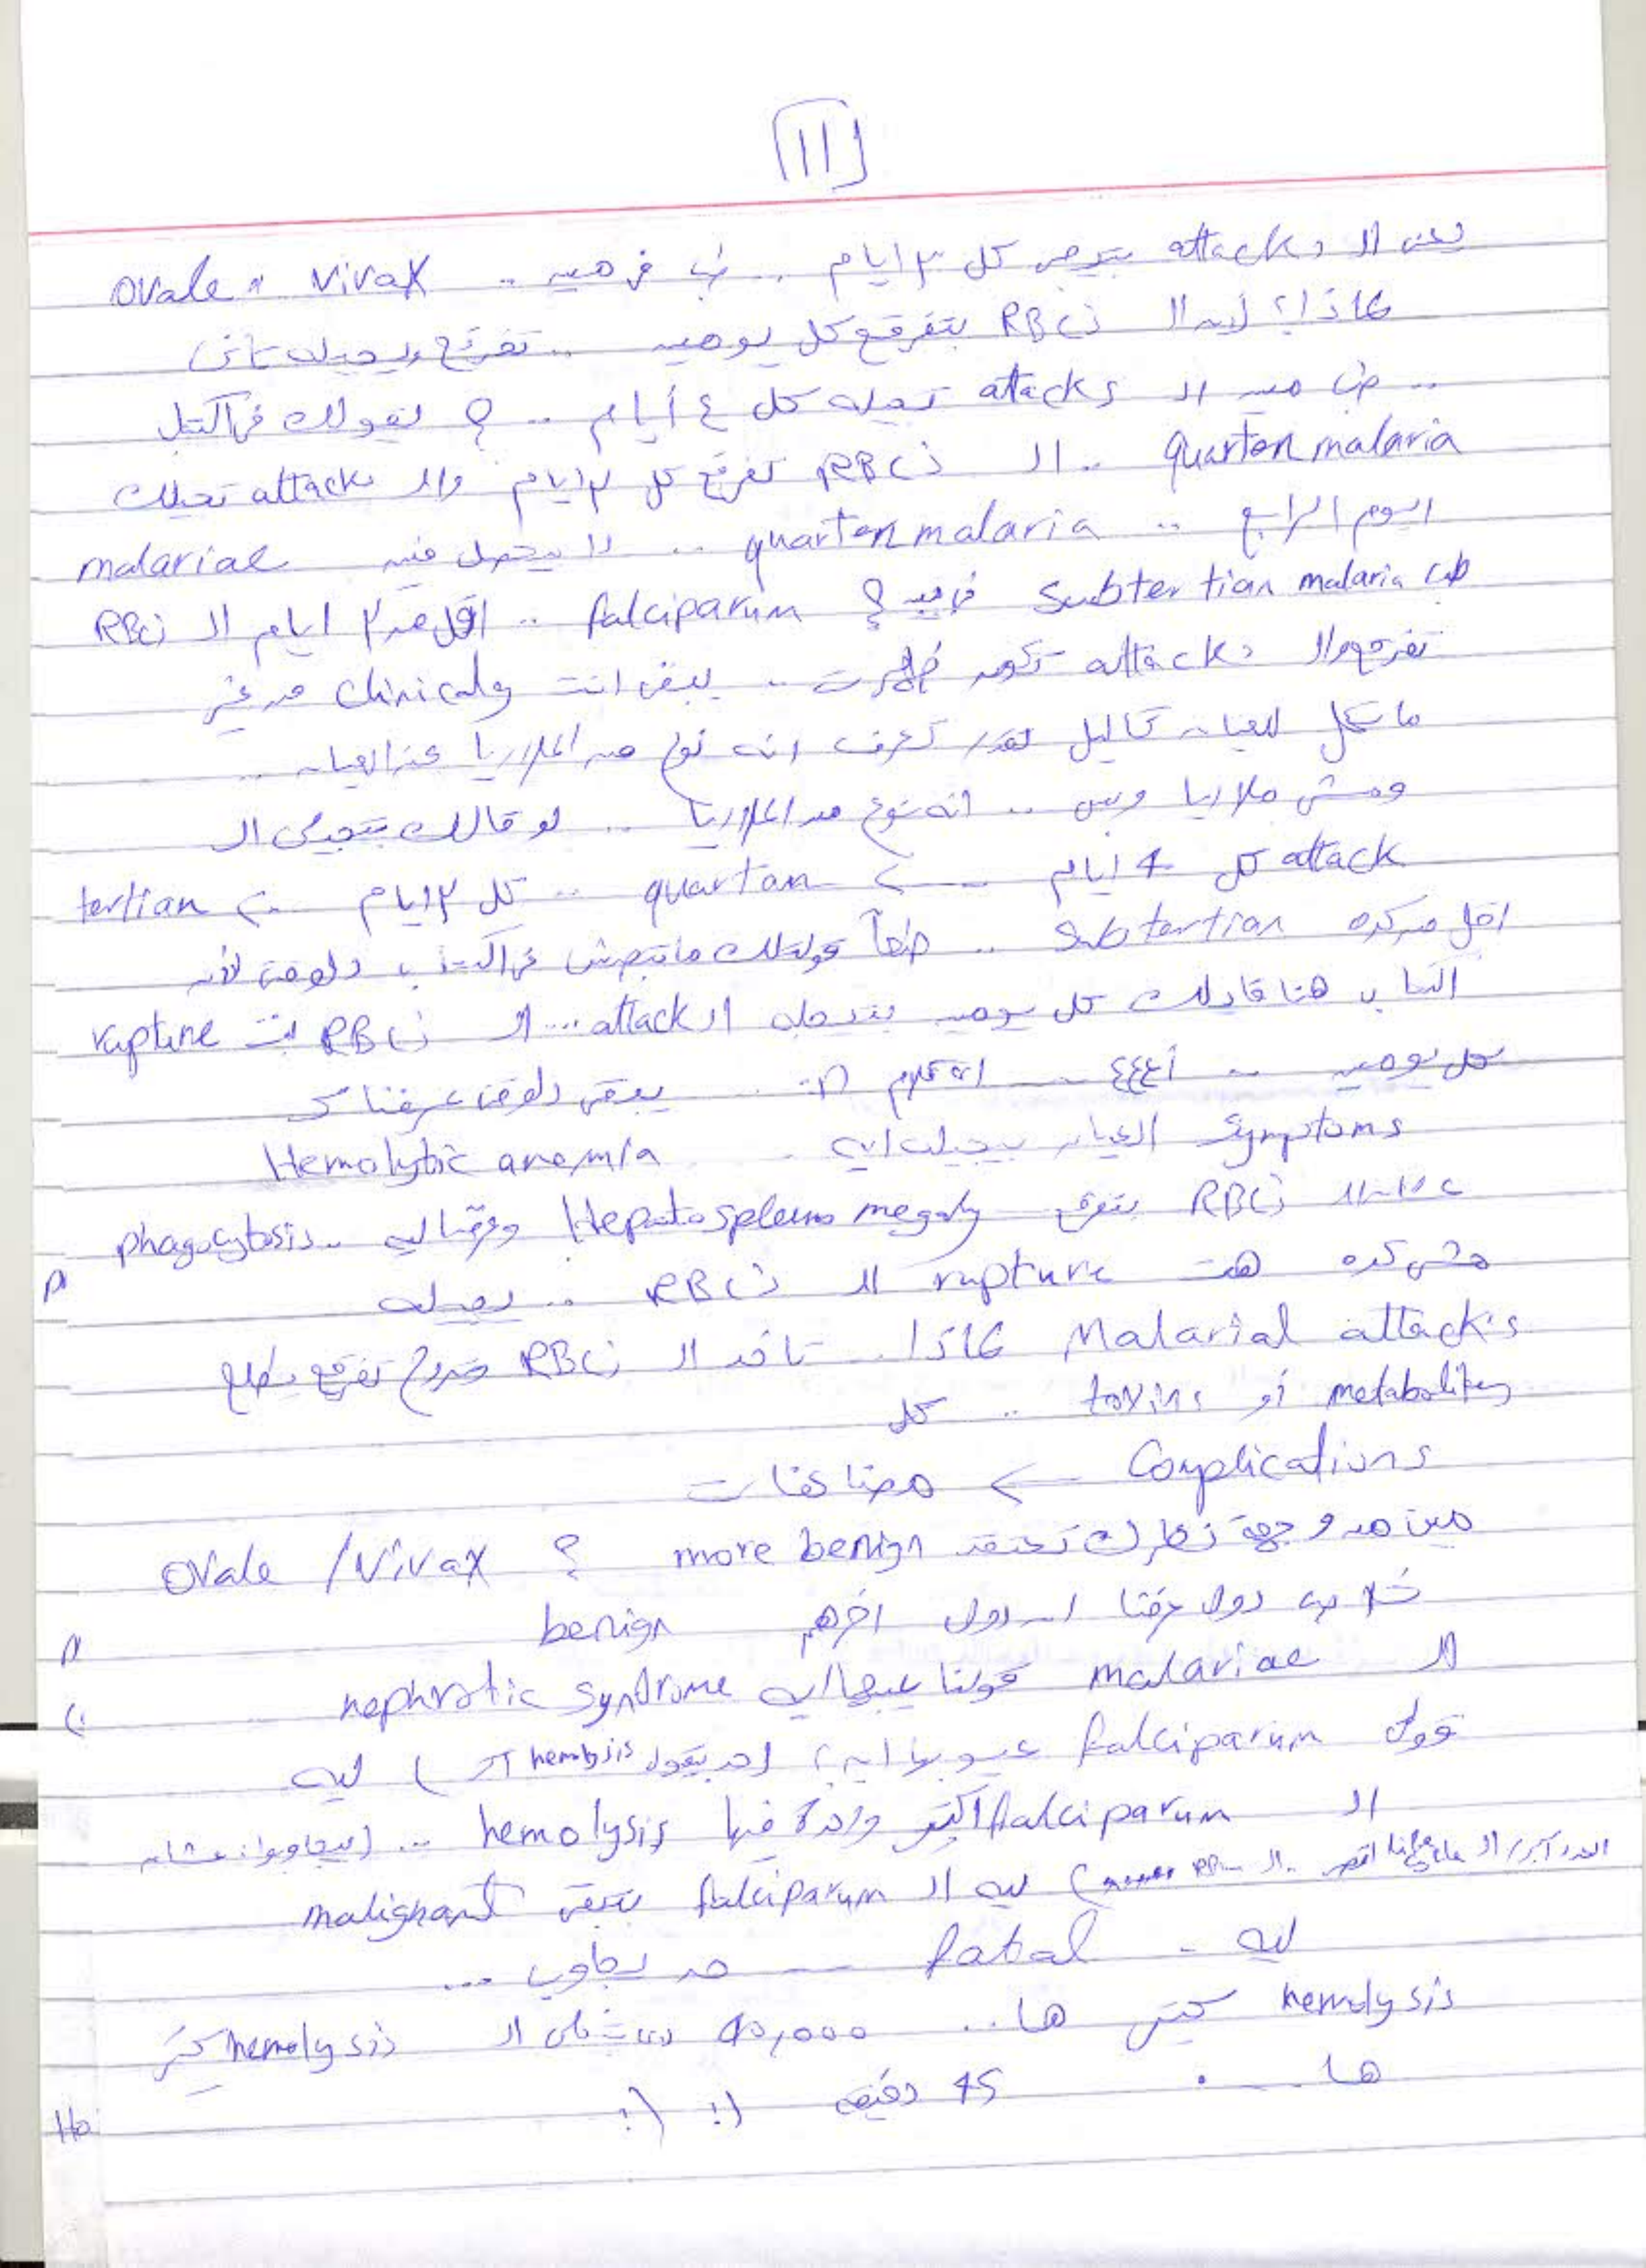 [11]
يعني الـ attacks بتيجي كل ٣ ايام .. طب في مين .. Vivax و Ovale
لماذا؟ لأن الـ RBCs بتفرقع كل يومين .. تفرقع ويجيلك تاني
.. طب مين الـ attacks تجيله كل ٤ أيام .. ؟ نقولك في الكتاب
quartan malaria .. الـ RBCs تفرقع كل ٣ ايام والـ attacks تجيلك
اليوم الرابع .. quartan malaria .. دا بيحصل فين malariae
طب Subtertian malaria في مين ؟ falciparum .. اقل من ٣ ايام الـ RBCs
تفرقع والـ attacks تكون ظهرت .. يبقى انت clinicaly من غير
ما تعمل للعيان تحاليل تقدر تعرف انه نوع من الملاريا عند العيان ..
ومش ملاريا وبس .. انه نوع من الملاريا .. لو قالك بتجيلي الـ
attack كل 4 ايام --> quartan .. كل ٣ ايام --> tertian
اقل من كده Subtertian .. طبعاً قولتلك ماتبصش في الكتاب دلوقتي لأن
الكتاب هنا قالك كل يومين بتجيله الـ attack ... الـ RBCs بت rupture
كل يومين .. يبقى دلوقتي عرفنا كـ
symptoms العيان بيجيلك ايه .. Hemolytic anemia
علشان الـ RBCs بتفرقع Hepatosplenomegaly وعرفنا ليه .. phagocytosis
مش كده هت rupture الـ RBCs .. يجيله
Malarial attacks لماذا .. تاخد الـ RBCs تفرقع يطلع
metabolites أو toxins .. كل
Complications <-- مضاعفات
مين من وجهة نظرك تعتقد more benign ؟ Ovale / Vivax
خلاص دول عرفنا ان دول اخرهم benign
الـ malariae قولنا عيبها ايه nephrotic syndrome
قولي falciparum عيوبها ايه؟ (حد يقول hemolysis) ليه
الـ falciparum اكتر واحدة فيها hemolysis .. (بيجاوبوا: عشان
) ليه الـ falciparum بتبقى malignant
ليه - fatal --- حد يجاوب ...
hemolysis كتير ها .. 40,000 الـ hemolysis كتير
ها .... 45 دقيقه (: (: